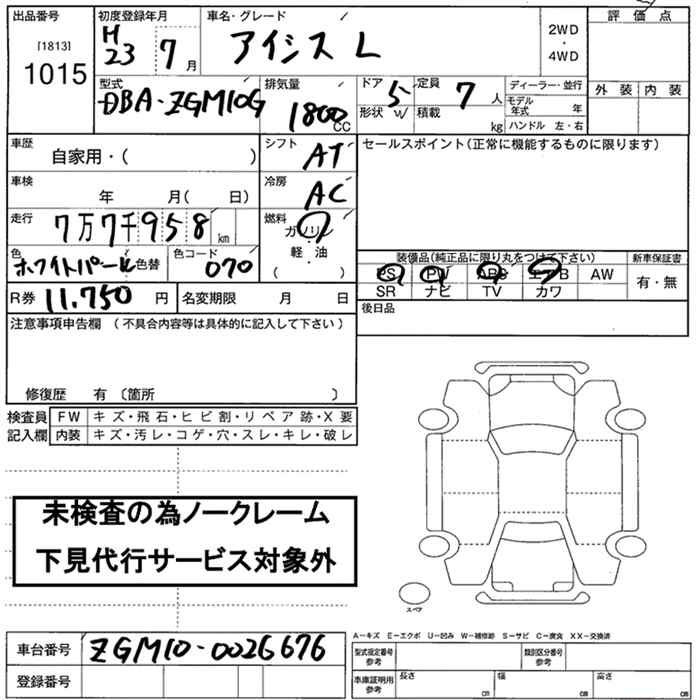 出品番号 初度登録年月 車名・グレード 評価点
[1813] H 23 7月 アイシス L 2WD ・ 4WD
1015 外装 内装
型式 排気量 ドア 5 定員 7人 ディーラー・並行
DBA-ZGM10G 1800cc 形状 W 積載 kg モデル年式 年
ハンドル 左・右
車歴 自家用・( ) シフト AT セールスポイント(正常に機能するものに限ります)
車検 年 月( 日) 冷房 AC
走行 7万7千958km 燃料 ガソリン
軽・油
( ・ )
色 ホワイトパール 色替 色コード 070 装備品(純正品に限り丸をつけて下さい) 新車保証書
PS PW ABS エアB AW 有・無
R券 11,750円 名変期限 月 日 SR ナビ TV カワ
注意事項申告欄 (不具合内容等は具体的に記入して下さい) 後日品
修復歴 有 (箇所 )
検査員 FW キズ・飛石・ヒビ割・リペア跡・X要
記入欄 内装 キズ・汚レ・コゲ・穴・スレ・キレ・破レ
未検査の為ノークレーム
下見代行サービス対象外
スペア
A-キズ E-エクボ U-凹み W-補修跡 S-サビ C-腐食 XX-交換済
車台番号 ZGM10-0026676 型式指定番号 参考 類別区分番号 参考
登録番号 車庫証明用 参考 長さ cm 幅 cm 高さ cm